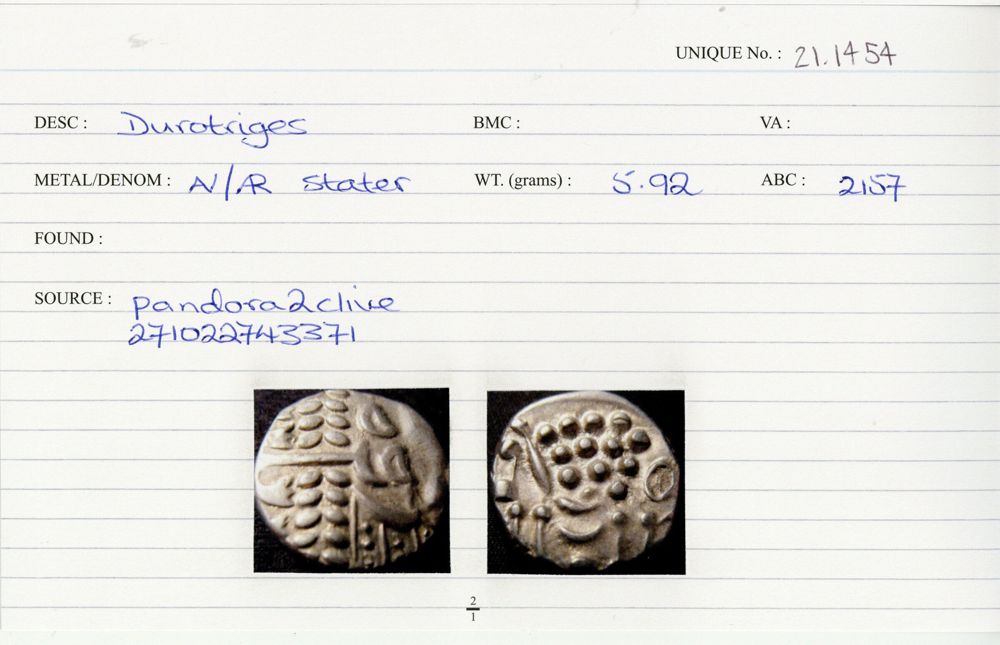 UNIQUE No. : 21.1454
DESC : Durotriges BMC : VA :
METAL/DENOM : N/AR Stater WT. (grams) : 5.92 ABC : 2157
FOUND :
SOURCE : pandora2clive
271022743371
2
1